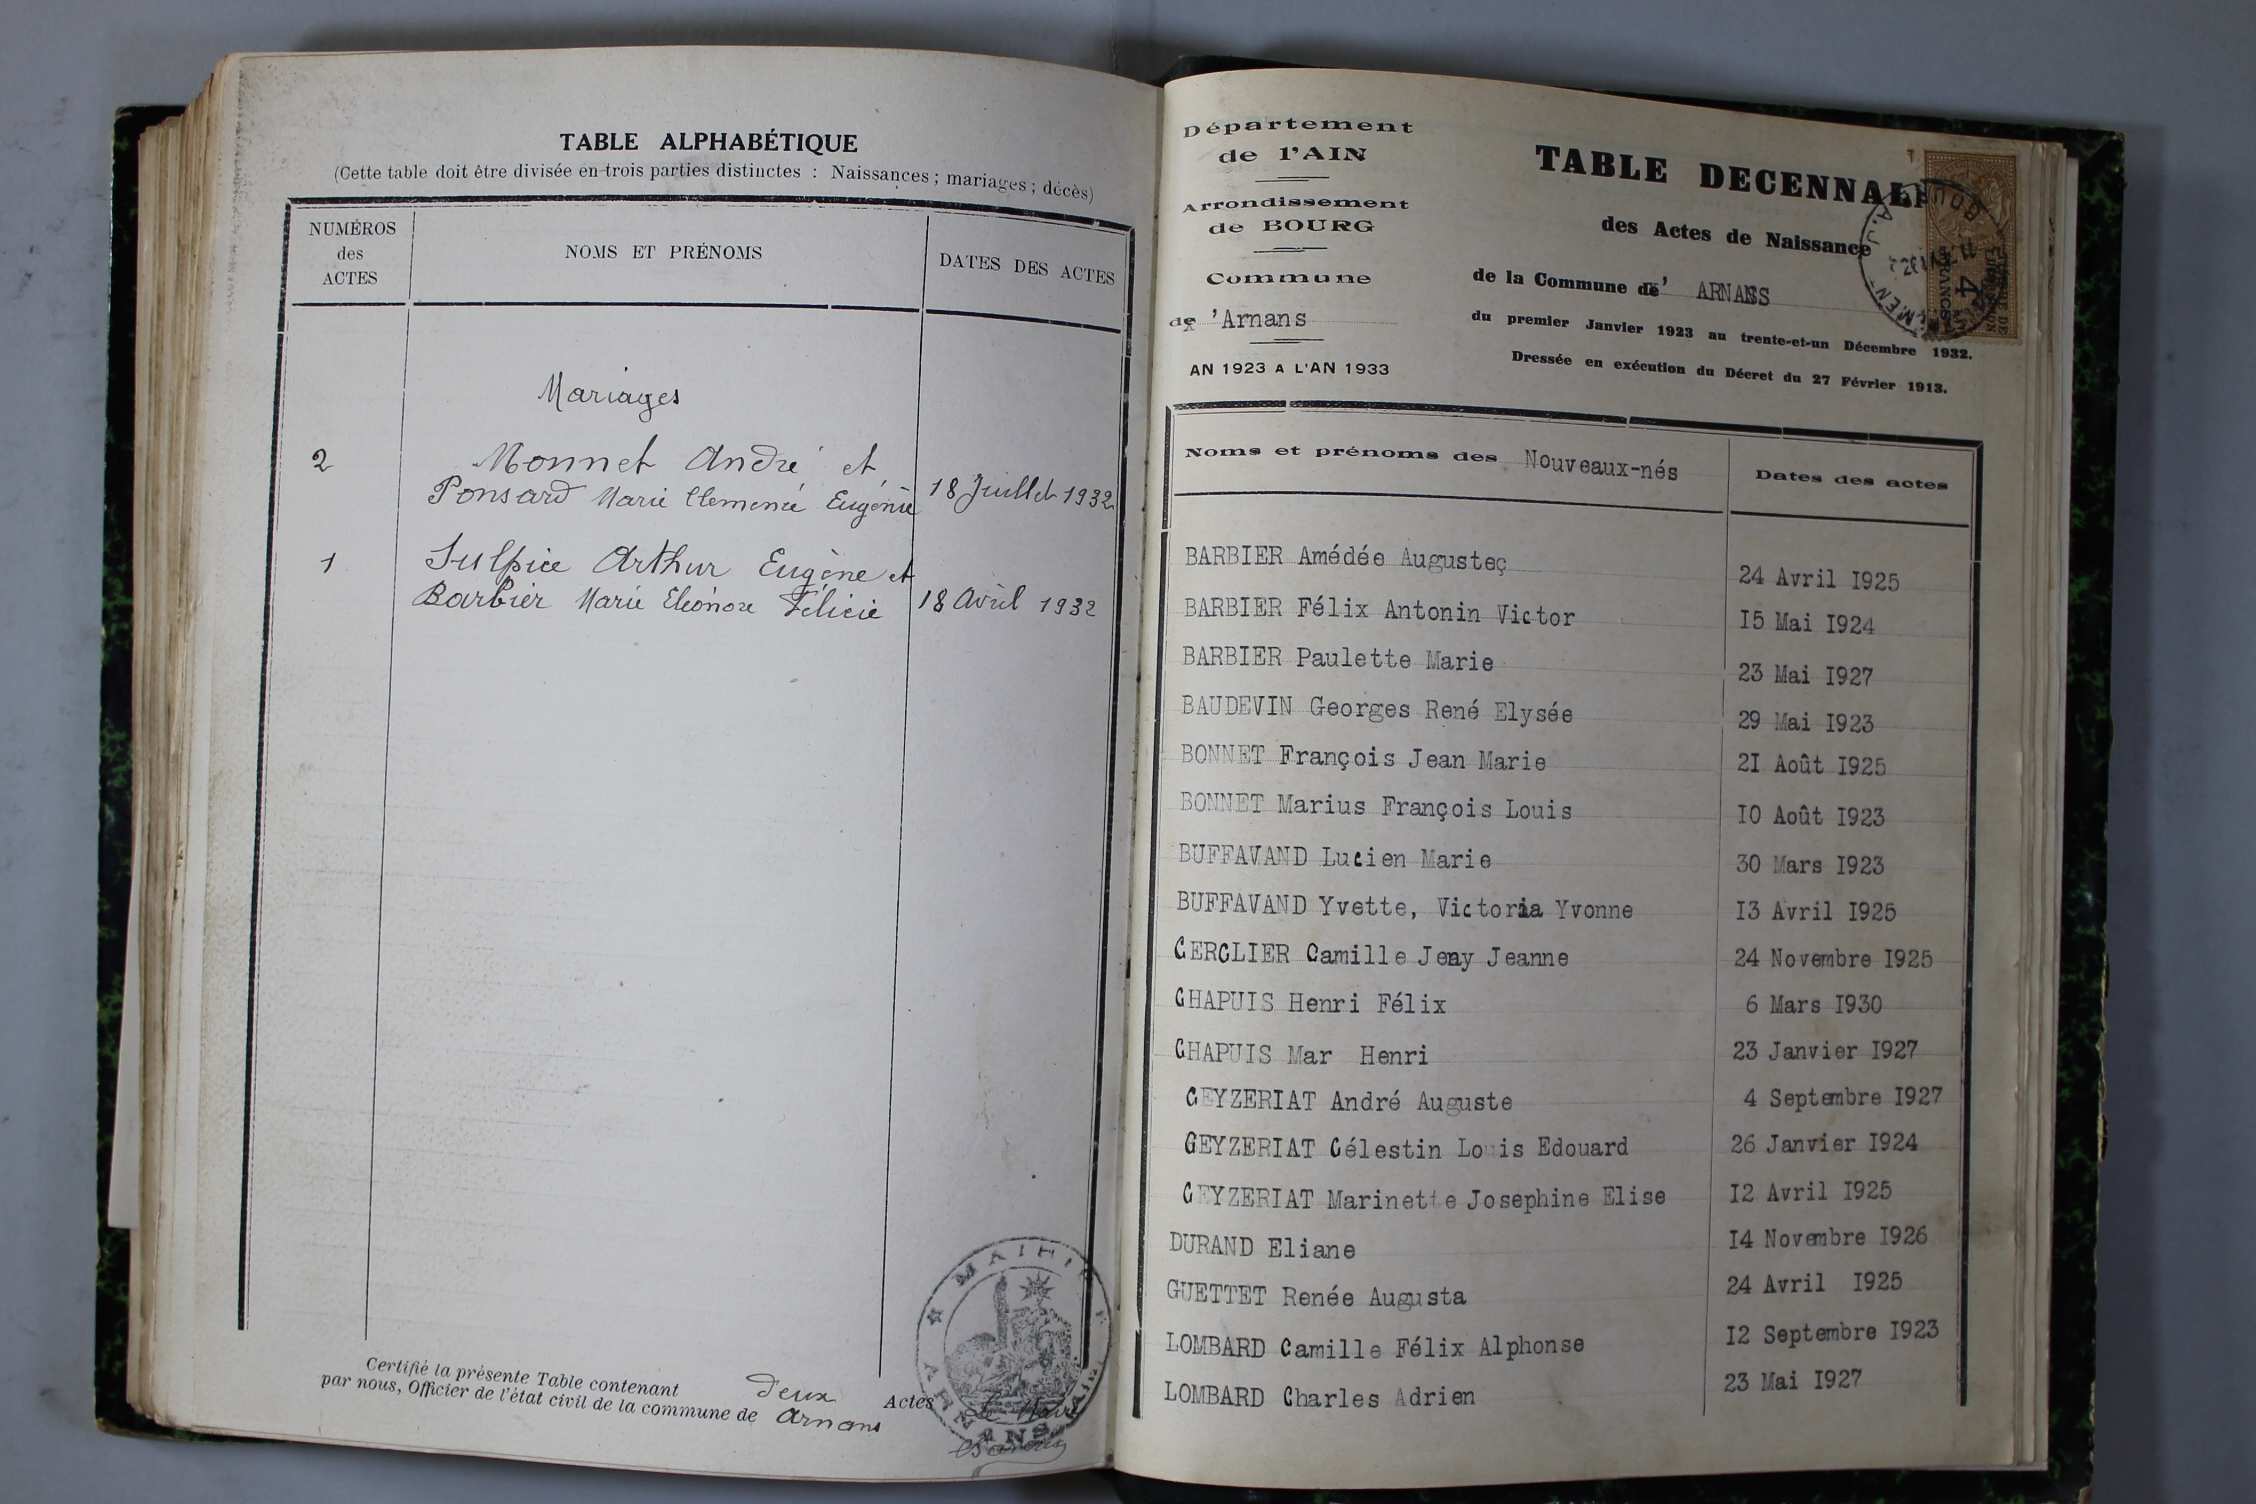 TABLE ALPHABÉTIQUE
(Cette table doit être divisée en trois parties distinctes : Naissances ; mariages ; décès)
NUMÉROS
des
ACTES
NOMS ET PRÉNOMS
DATES DES ACTES
Mariages
2 Monnet André et
Ponsard Marie Clemence Eugénie 18 Juillet 1932
1 Sulpice Arthur Eugène et
Barbier Marie Eléonore Félicie 18 Avril 1932
Certifié la présente Table contenant deux Actes
par nous, Officier de l'état civil de la commune de Arnans
Le Maire
MAIRIE
ARNANS
Département
de l'AIN
Arrondissement
de BOURG
Commune
de 'Arnans
AN 1923 A L'AN 1933
TABLE DECENNALE
des Actes de Naissance
de la Commune de' ARNANS
du premier Janvier 1923 au trente-et-un Décembre 1932.
Dressée en exécution du Décret du 27 Février 1913.
Noms et prénoms des Nouveaux-nés
Dates des actes
BARBIER Amédée Augusteç 24 Avril I925
BARBIER Félix Antonin Victor I5 Mai I924
BARBIER Paulette Marie 23 Mai I927
BAUDEVIN Georges René Elysée 29 Mai I923
BONNET François Jean Marie 2I Août I925
BONNET Marius François Louis I0 Août I923
BUFFAVAND Lucien Marie 30 Mars I923
BUFFAVAND Yvette, Victoria Yvonne I3 Avril I925
CERCLIER Camille Jeny Jeanne 24 Novembre I925
CHAPUIS Henri Félix 6 Mars I930
CHAPUIS Mar Henri 23 Janvier I927
CEYZERIAT André Auguste 4 Septembre I927
CEYZERIAT Célestin Louis Edouard 26 Janvier I924
CEYZERIAT Marinette Josephine Elise I2 Avril I925
DURAND Eliane I4 Novembre I926
GUETTET Renée Augusta 24 Avril I925
LOMBARD Camille Félix Alphonse I2 Septembre I923
LOMBARD Charles Adrien 23 Mai I927